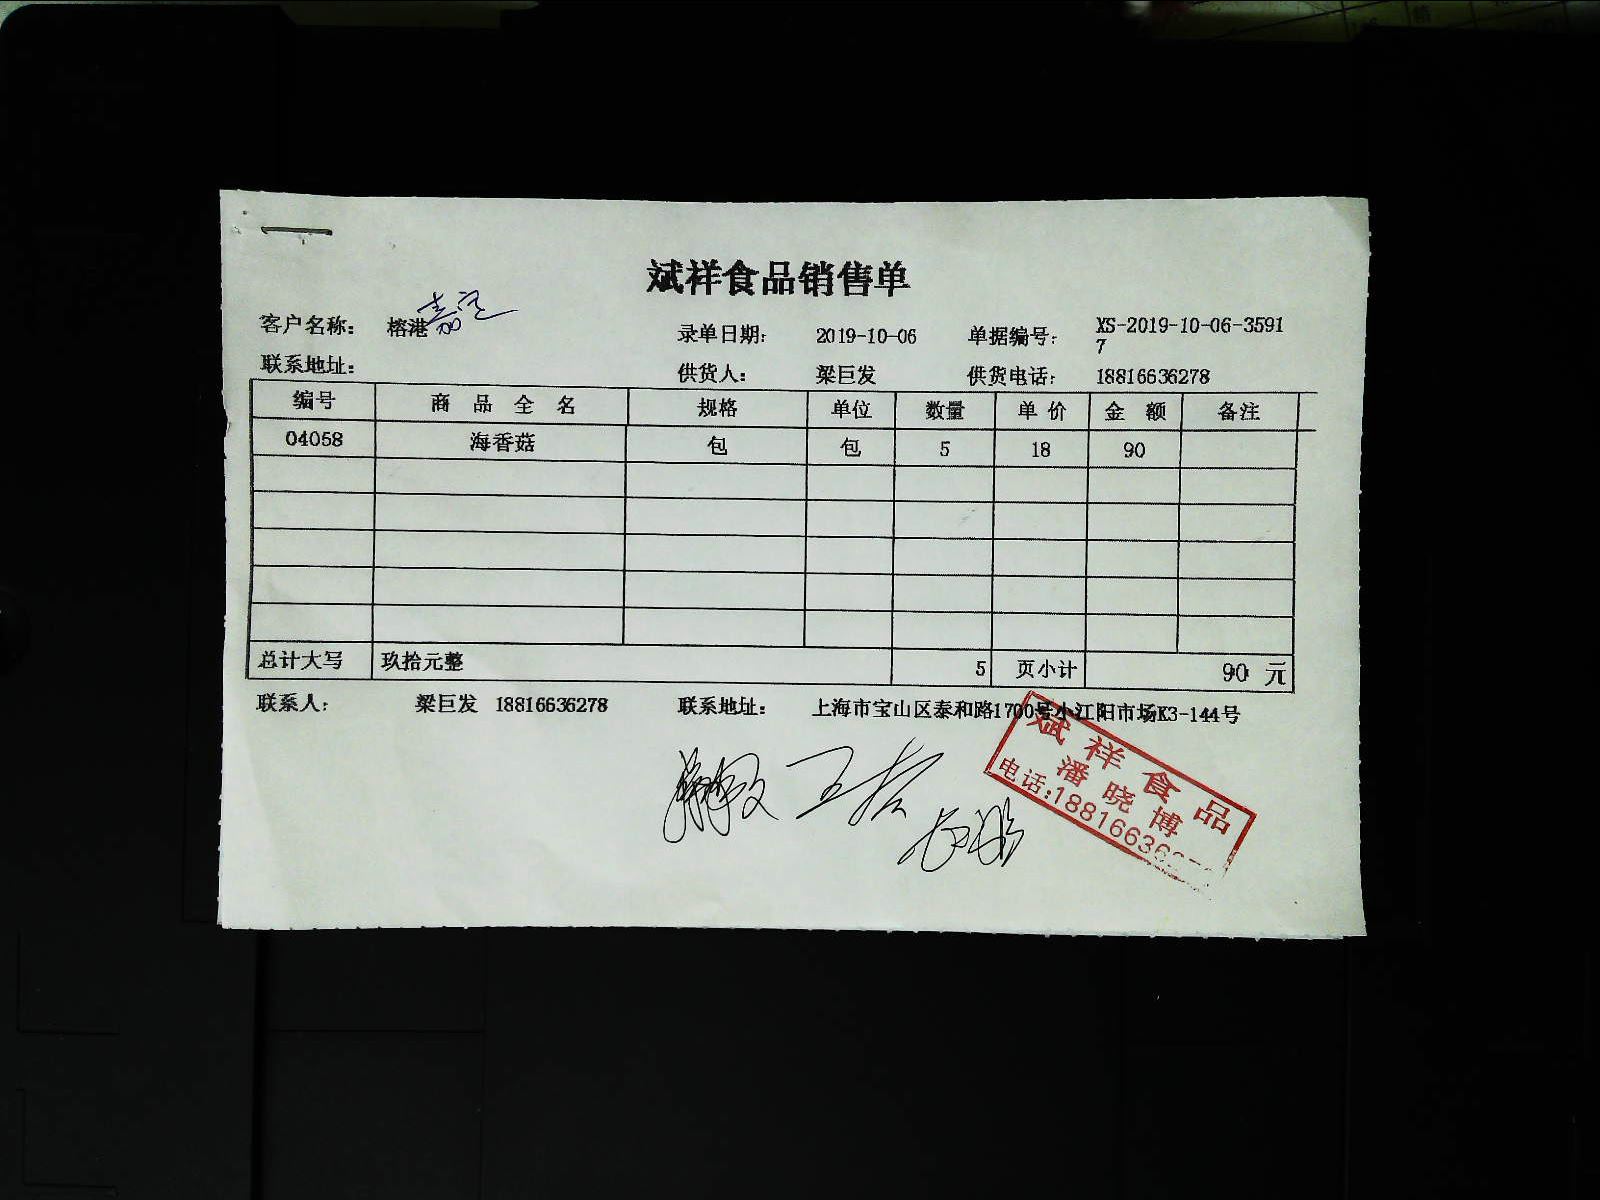 斌祥食品销售单
客户名称： 榕港 嘉定 录单日期： 2019-10-06 单据编号： XS-2019-10-06-35917
联系地址： 供货人： 梁巨发 供货电话： 18816636278
编号 商品全名 规格 单位 数量 单价 金额 备注
04058 海香菇 包 包 5 18 90
总计大写 玖拾元整 5 页小计 90 元
联系人： 梁巨发 18816636278 联系地址： 上海市宝山区泰和路1700号小江阳市场K3-144号
斌祥食品
潘晓博
电话:18816636